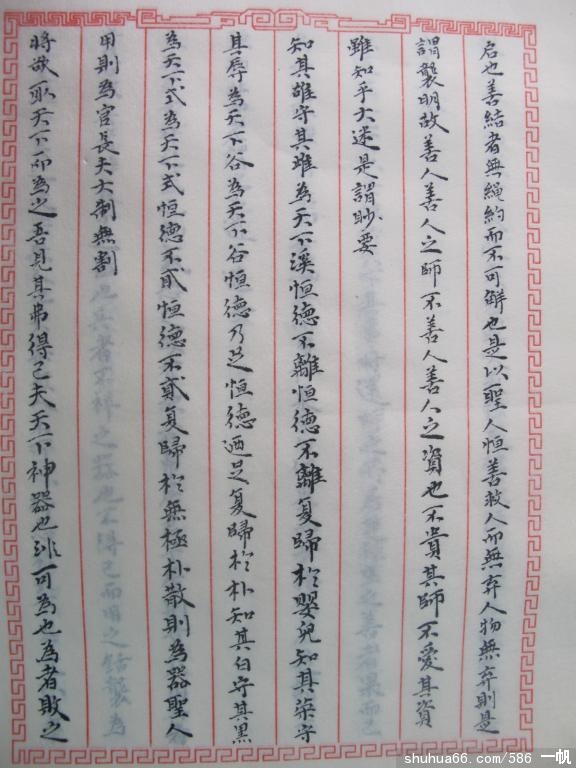 启也善结者無绳約而不可解也是以聖人恒善救人而無弃人物無弃財是
謂襲明故善人善人之師不善人善人之資也不貴其師不愛其資
雖知乎大迷是謂眇要
知其雄守其雌為天下溪恒德不離恒德不離复歸於嬰兒知其榮守
其辱為天下谷為天下谷恒德乃足恒德迺足复歸於朴知其白守其黑
為天下式為天下式恒德不貳恒德不貳复歸於無極朴散則為器聖人
用則為官長夫大制無割
將欲取天下而為之吾見其弗得已夫天下神器也非可為也為者敗之
shuhua66.com/586 一帆